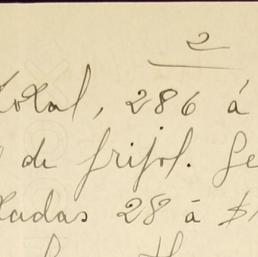 2
total, 286 á
de frijol. Ge
ladas 28 á $